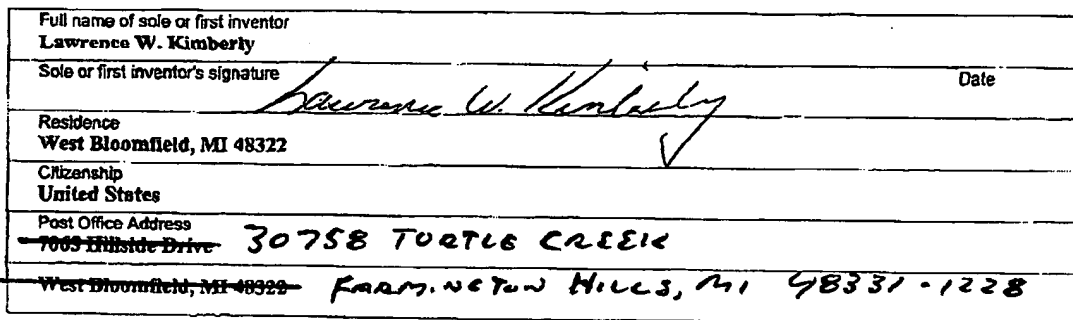 Full name of sole or first inventor
Lawrence W. Kimberly
Sole or first inventor's signature Date
Lawrence W. Kimberly
Residence
West Bloomfield, MI 48322
Citizenship
United States
Post Office Address
7063 Hillside Drive 30758 TURTLE CREEK
West Bloomfield, MI 48322 FARMINGTON HILLS, MI 48331-1228